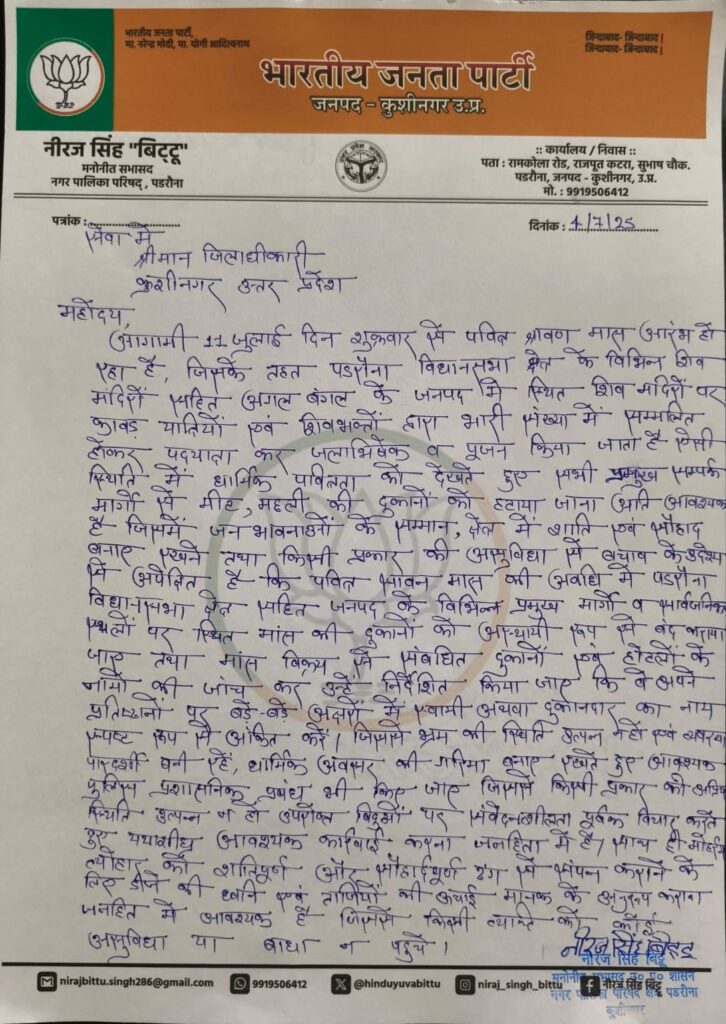 भारतीय जनता पार्टी,
मा. नरेन्द्र मोदी, मा. योगी आदित्यनाथ
जिन्दाबाद- जिन्दाबाद।
जिन्दाबाद- जिन्दाबाद।
भारतीय जनता पार्टी
जनपद - कुशीनगर उ.प्र.
नीरज सिंह "बिट्टू"
मनोनीत सभासद
नगर पालिका परिषद् , पडरौना
:: कार्यालय / निवास ::
पता : रामकोला रोड, राजपूत कटरा, सुभाष चौक.
पडरौना, जनपद - कुशीनगर, उ.प्र.
मो. : 9919506412
पत्रांक :
दिनांक : 4/7/25
सेवा में
श्रीमान जिलाधीकारी
कुशीनगर उत्तर प्रदेश
महोदय,
आगामी 11 जुलाई दिन शुक्रवार से पवित्र श्रावण मास आरंभ हो
रहा है, जिसके तहत पडरौना विधानसभा क्षेत्र के विभिन्न शिव
मंदिरों सहित अगल बगल के जनपद में स्थित शिव मंदिरों पर
कावड़ यात्रियों एवं शिवभक्तों द्वारा भारी संख्या में सम्मलित
होकर पदयात्रा कर जलाभिषेक व पूजन किया जाता है ऐसी
स्थिति में धार्मिक पवित्रता को देखते हुए सभी प्रमुख सम्पर्क
मार्गों से मीट, मछली की दुकानों को हटाया जाना अति आवश्यक
है जिसमें जन भावनाओं के सम्मान, क्षेत्र में शांति एवं सौहाद
बनाए रखने तथा किसी प्रकार की असुविधा से बचाव के उद्देश्य
से अपेक्षित है कि पवित्र सावन मास की अवधि में पडरौना
विधानसभा क्षेत्र सहित जनपद के विभिन्न प्रमुख मार्गो व सार्वजनिक
स्थलों पर स्थित मांस की दुकानों को अस्थायी रूप से बंद कराया
जाए तथा मांस विक्रय से संबधित दुकानों एवं होटलों के
नामों की जांच कर उन्हें निर्देशित किया जाए कि वे अपने
प्रतिष्ठानों पर बड़े-बड़े अक्षरों में स्वामी अथवा दुकानदार का नाम
स्पष्ट रूप से अंकित करें। जिससे भ्रम की स्थिति उत्पन्न नहो एवं व्यवस्था
पारदर्शी बनी रहें, धार्मिक अवसर की गरिमा बनाए रखते हुए आवश्यक
पुलिस प्रशासनिक प्रबंध भी किए जाए जिससे किसी प्रकार की अप्रिय
स्थिति उत्पन्न न हो उपरोक्त बिंदुओं पर संवेदनशीलता पूर्वक विचार करते
हुए यथाशीघ्र आवश्यक कार्रवाई करना जनहित में है। साथ ही मोहर्रम
त्योहार को शांतिपूर्ण और सौहार्दपूर्ण ढंग से संपन्न कराने के
लिए डीजे की ध्वनि एवं ताजियों की ऊंचाई मानक के अनुरूप कराना
जनहित में आवश्यक है जिससे किसी व्यक्ति को कोई
असुविधा या बाधा न पहुचे।
नीरज सिंह बिट्टू
नीरज सिंह बिट्टू
मनोनीत सभासद उ० प्र० शासन
नगर पालिका परिषद क्षेत्र पडरौना
कुशीनगर
nirajbittu.singh286@gmail.com 9919506412 @hinduyuvabittu niraj_singh_bittu नीरज सिंह बिट्टू